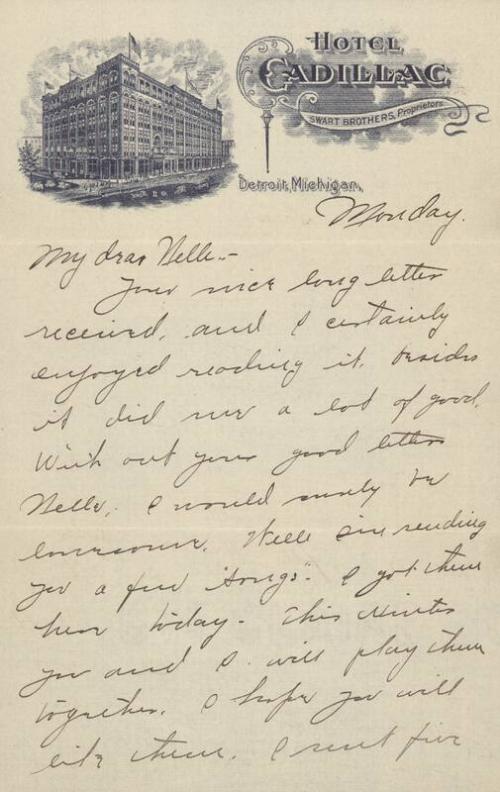 HOTEL
CADILLAC
SWART BROTHERS, Proprietors
Detroit, Michigan,
Monday.
My dear Nelle:-
Your nice long letter
received, and I certainly
enjoyed reading it, besides
it did me a lot of good.
With out your good letters
Nelle, I would surely be
lonesome. Well I'm sending
you a few "Songs". I got them
here today. This winter
you and I will play them
together. I hope you will
like them. I sent five